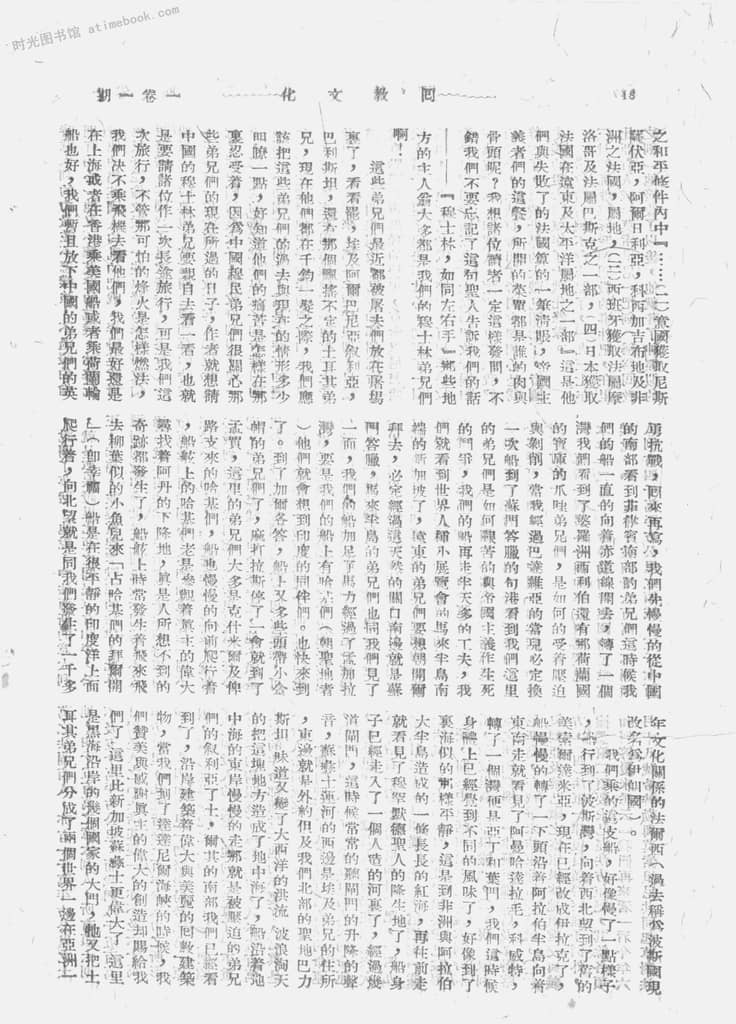 时光图书馆 atimebook.com
期一卷一
化文教回
18
之和平條件內中『……(一)意國獲取尼斯
羅伏亞，阿爾日利亞，科西加吉布地及非
洲之法國，屬地，(二)西班牙獲取法屬摩
洛哥及法屬巴斯克之一部，(四)日本獲取
法國在遠東及太平洋屬地之一部』這是他
們與失敗了的法國算的一筆清賬，帝國主
義者們的這餐，所開的菜單都是誰的肉與
骨頭呢？我想諸位讀者一定這樣發問，不
錯我們不要忘記了這句聖人告訴我們的話
——『穆士林，如同左右手』那些地
方的主人翁大多都是我們的穆士林弟兄們
啊！
這些弟兄們最近都被屠夫們放在屠場
裏了，看看罷，埃及阿爾巴尼亞叙利亞，
巴利斯坦，還有那個飄搖不定的土耳其弟
兄，現在他們都在千鈞一髮之際，我們應
該把這些弟兄們的過去與現在的情形多少
明瞭一點，好知道他們的痛苦是怎樣在那
裏忍受着，因爲中國穆民弟兄們很關心那
些弟兄們的現在所過的日子，作者就想請
中國的穆士林弟兄要親自去看一看，也就
是要請諸位作一次長途旅行，可是我們這
次旅行，不管那可怕的烽火是怎樣燃法，
我們决不乘飛機去看他們，我們最好還是
在上海或者在香港乘美國船或者乘荷蘭輪
船也好，我們暫且放下中國的弟兄們的英
勇抗戰，回來再寫，我們先慢慢的從中國
的南部看到菲律賓南部的弟兄們這時候我
們的船一直的向着赤道線開去，轉了一個
灣我們看到了婆羅洲西利伯還有那荷蘭國
的寶庫的爪哇弟兄們，是如何的受着壓迫
與剝削，當我經過巴達維亞的當兒必定換
一次船到了蘇門答臘的旬港看到我們這里
的弟兄們是如何艱苦的與帝國主義作生死
的鬥爭，我們的船再走半天多的工夫，我
們就看到世界人種小展覽會的馬來半島南
端的新加坡了，遠東的弟兄們要想朝聞爾
拜去，必定經過這天然的關口南邊就是蘇
門答臘，馬來半島的弟兄們也同我們見了
一面，我們的船加足了馬力經過了孟加拉
灣，要是我們的船上有哈基們(朝聖地者
)他們就會想到印度的同伴們。也快來到
了。到了加爾各答，船上又多些頭帶小合
帽的弟兄們了，麻打拉斯停了一會就到了
孟買，這里的弟兄們大多是克什米爾及俾
路支來的哈基們，船也慢慢的向前爬行着
，船舷上的哈基們老是參觀着眞主的偉大
尋找着阿丹的下降地，眞是人所想不到的
奇跡都發生了，船舷上時常發生着飛來飛
去柳葉似的小魚兒來「占哈基們的拜爾開
」(即幸福)船是在很平靜的印度洋上面
爬行着，向北望就是同我們發生了一千多
年文化關係的法爾西(過去稱爲波斯國現
改名爲伊朗國)。
我們乘的這支船，好像慢了一點樣子
，船行到了波斯灣，向着西北望到了舊的
美索爾達米亞，現在已經改成伊拉克了，
船慢慢的轉了一下頭沿着阿拉伯半島向着
東南走就看見了阿曼哈達拉毛，科威特，
轉了一個灣便是亞丁和葉門，我們這時候
身體上已經覺到不同的風味了，好像到了
裏海似的那樣平靜，這是到非洲與阿拉伯
大半島造成的一條長長的紅海，再往前走
就看見了穆罕默德聖人的降生地了，船身
子已經走入了一個人造的河裏了，經過幾
道閘門，這時候常常的聽閘門的升降的聲
音，蘇彝士運河的西邊是埃及弟兄的住所
，東邊就是外約但及我們北部的聖地巴力
斯坦，味道又變了大西洋的洪流，波浪淘天
的把這塊地方造成了地中海了，船沿着地
中海的東岸慢慢的走那就是被壓迫的弟兄
們的叙利亞了，土，爾其的南部我們已經看
到了，沿岸建築着偉大與美麗的回教建築
物，當我們到了達達尼爾海峽的時候，我
們贊美與感謝眞主的偉大的創造却賜給我
們了，這里比新加坡蘇彝士更偉大了，這里
是黑海沿岸的幾個國家的大門，牠又把土
耳其弟兄們分成了兩個世界一邊在亞洲一